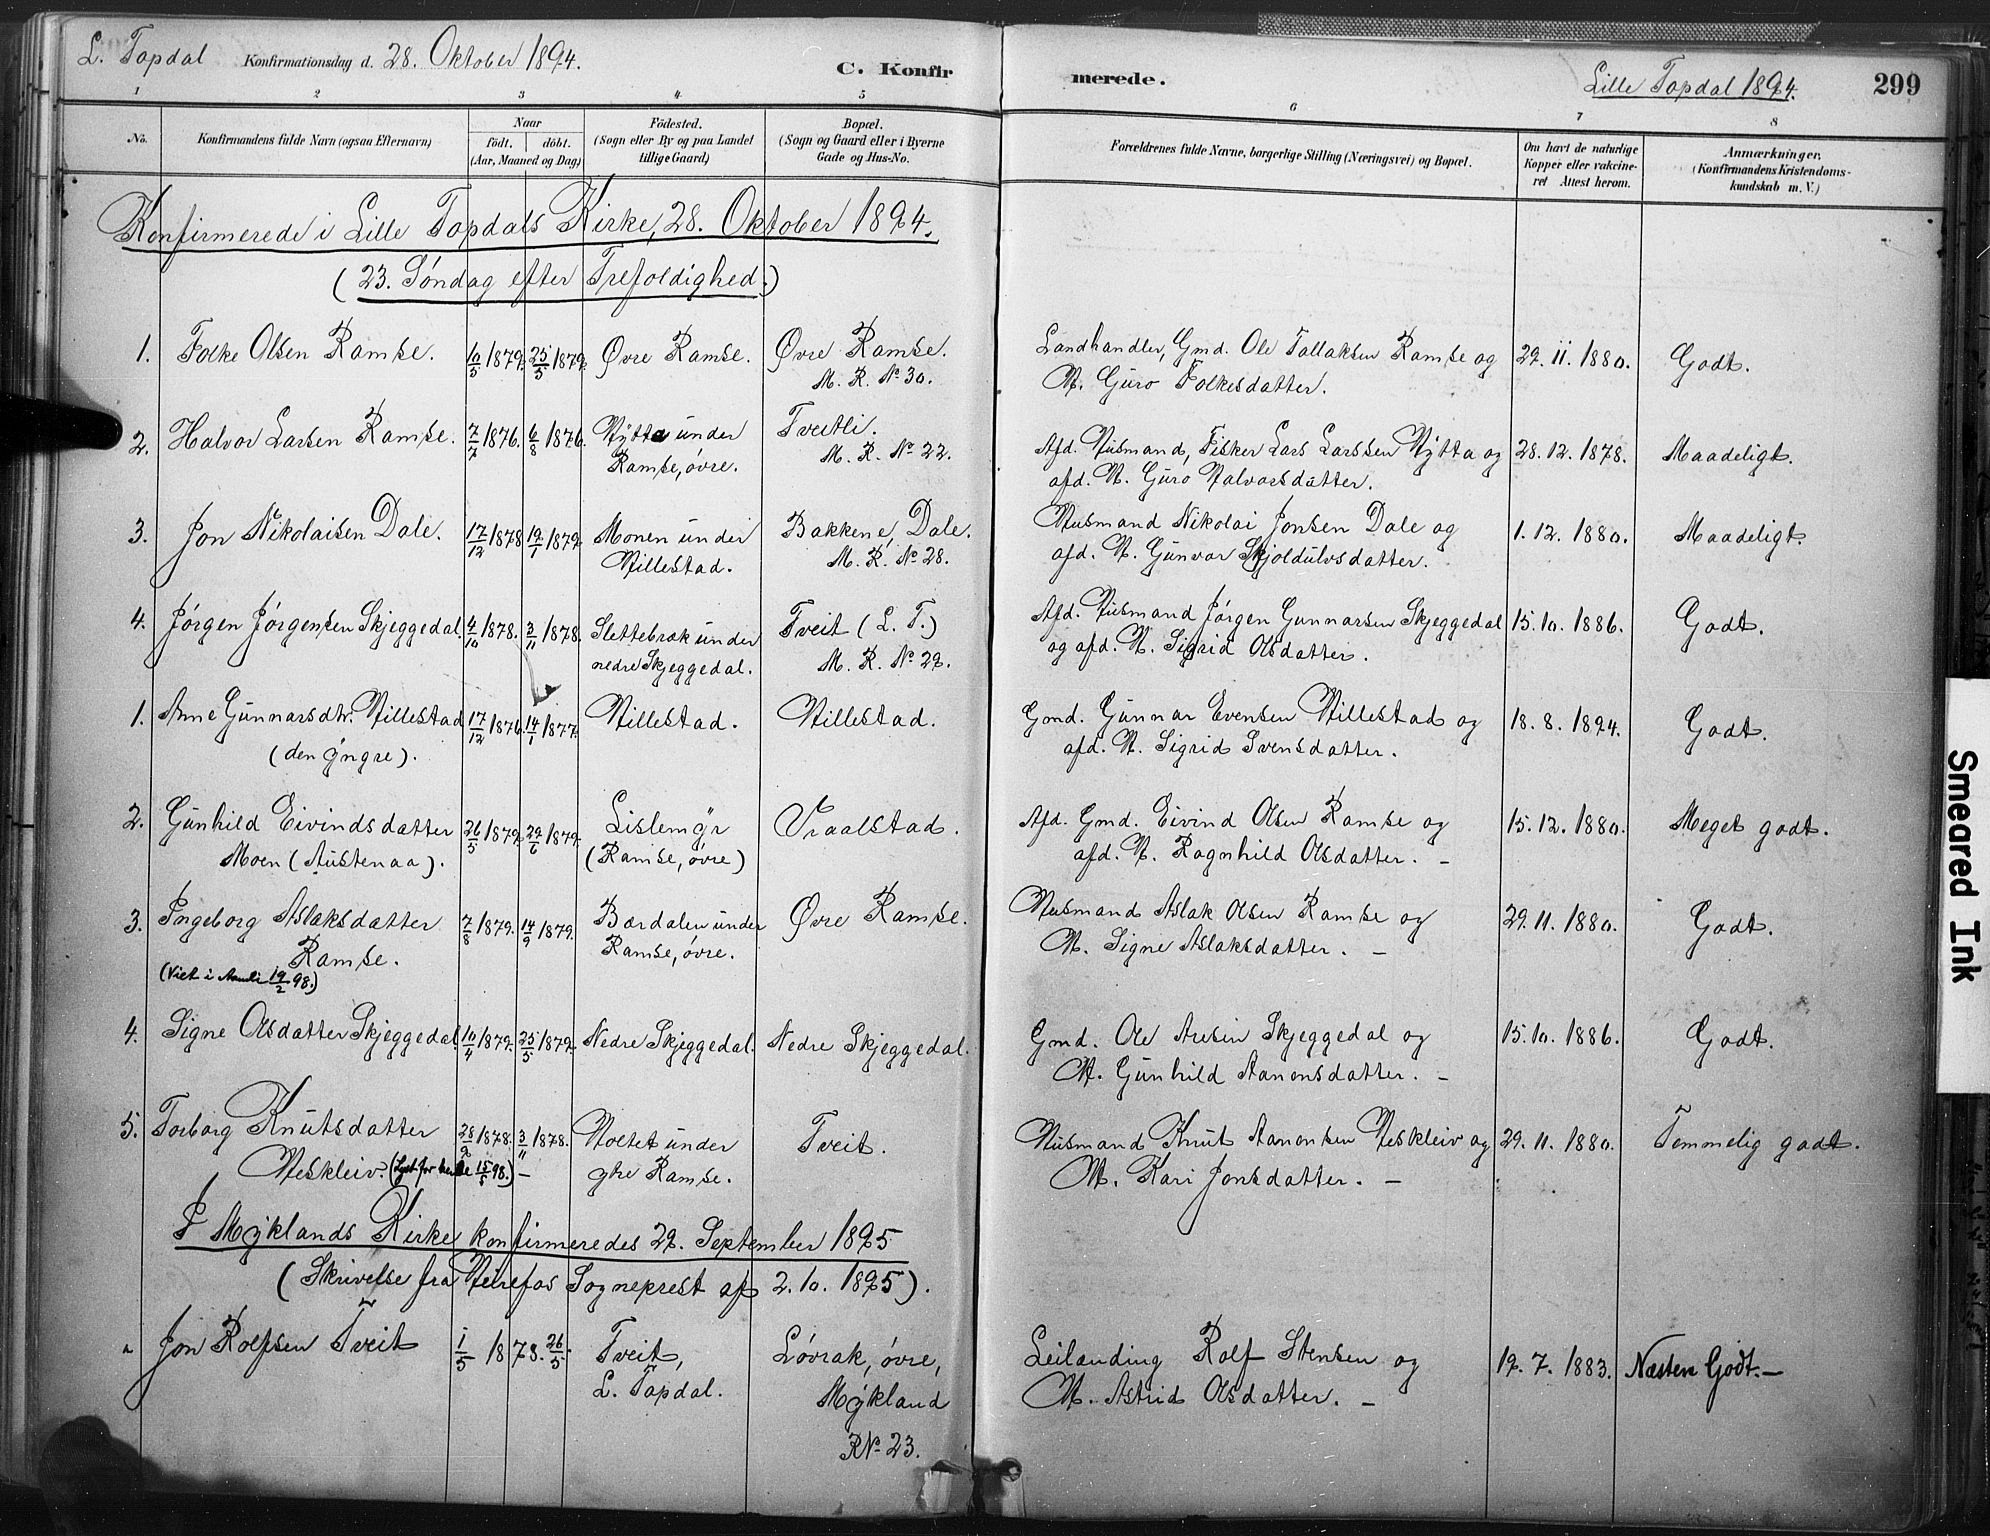 L. Topdal Konfirmationsdag d. 28. Oktober 1894. C. Konfirmerede. Lille Topdal 1894. 299
1 2 3 4 5 6 7 8
No. Konfirmandens fulde Navn (ogsaa Efternavn) Naar født. døbt. (Aar, Maaned og Dag) Fødested. (Sogn eller By og paa Landet tillige Gaard) Bopæl. (Sogn og Gaard eller i Byerne Gade og Hus-No. Forældrenes fulde Navne, borgerlige Stilling (Næringsvei) og Bopæl. Om havt de naturlige Kopper eller vakcineret Attest herom. Anmærkninger. (Konfirmandens Kristendomskundskab m. V.)
Konfirmerede i Lille Topdals Kirke, 28. Oktober 1894.
(23. Søndag efter Trefoldighed.)
1. Folke Olsen Ramse. 10/5 1879. 25/5 1879. Øvre Ramse. Øvre Ramse. Landhandler, Gmd. Ole Tallaksen Ramse og 29. 11. 1880. Godt.
M. R. No 30. H. Guro Folkesdatter.
2. Halvor Larsen Ramse. 7/7 1876. 6/8 1876. Hytta under Tveitli. Afd. Husmand, Fisker Lars Larssen Hytta og 28. 12. 1878. Maadeligt.
Ramse, øvre. M. R. No 22. afd. H. Guro Halvorsdatter.
3. Jon Nikolaisen Dale. 17/12 1878 19/1 1879 Monen under Bakkene, Dale. Husmand Nikolai Jonsen Dale og 1. 12. 1880. Maadeligt.
Hillestad. M. R. No 28. afd. H. Gunvor Skjoldulvsdatter.
4. Jørgen Jørgensen Skjeggedal. 4/10 1878. 3/11 1878. Slettebrok under Tveit (L. T.) Afd. Husmand Jørgen Gunnarsen Skjeggedal 15. 10. 1886. Godt.
nedre Skjeggedal. M. R. No 29. og afd. H. Sigrid Olsdatter.
1. Anne Gunnarsdtr. Hillestad 17/12 1876. 14/1 1877. Hillestad. Hillestad. Gmd. Gunnar Evensen Hillestad og 18. 8. 1894. Godt.
(den yngre). afd. H. Sigrid Svensdatter.
2. Gunhild Eivindsdatter 26/5 1879. 29/6 1879. Lislemyr Vraalstad. Afd. Gmd. Eivind Olsen Ramse og 15. 12. 1880. Meget godt.
Moen (Austenaa). (Ramse, øvre) afd. H. Ragnhild Olsdatter. –
3. Ingeborg Aslaksdatter 7/8 1879. 14/9 1879. Bærdalen under Øvre Ramse. Husmand Aslak Olsen Ramse og 29. 11. 1880. Godt.
Ramse. Ramse, øvre. H. Signe Aslaksdatter. –
(Viet i Aamli 19/2 98.)
4. Signe Olsdatter Skjeggedal. 10/4 1879. 25/5 1879. Nedre Skjeggedal. Nedre Skjeggedal. Gmd. Ole Aresen Skjeggedal og 15. 10. 1886. Godt.
H. Gunhild Aanonsdatter. –
5. Torborg Knutsdatter 28/9 1878. 3/11 1878. Holtet under Tveit. Husmand Knut Aanonsen Heskleiv og 29. 11. 1880. Temmelig godt.
Heskleiv. (Lyst for hende 15/5 98.) – øvre Ramse. H. Kari Jonsdatter. –
I Myklands Kirke konfirmeredes 29. September 1895
(Skrivelse fra Herefos Sogneprest af 2. 10. 1895).
Jon Rolfsen Tveit 1/5 1878. 26/5 Tveit, Løvrak, øvre, Leilænding Rolf Stensen og 19. 7. 1883. Næsten Godt. –
L. Topdal. Mykland H. Astrid Olsdatter. –
R No 23.
Smeared Ink